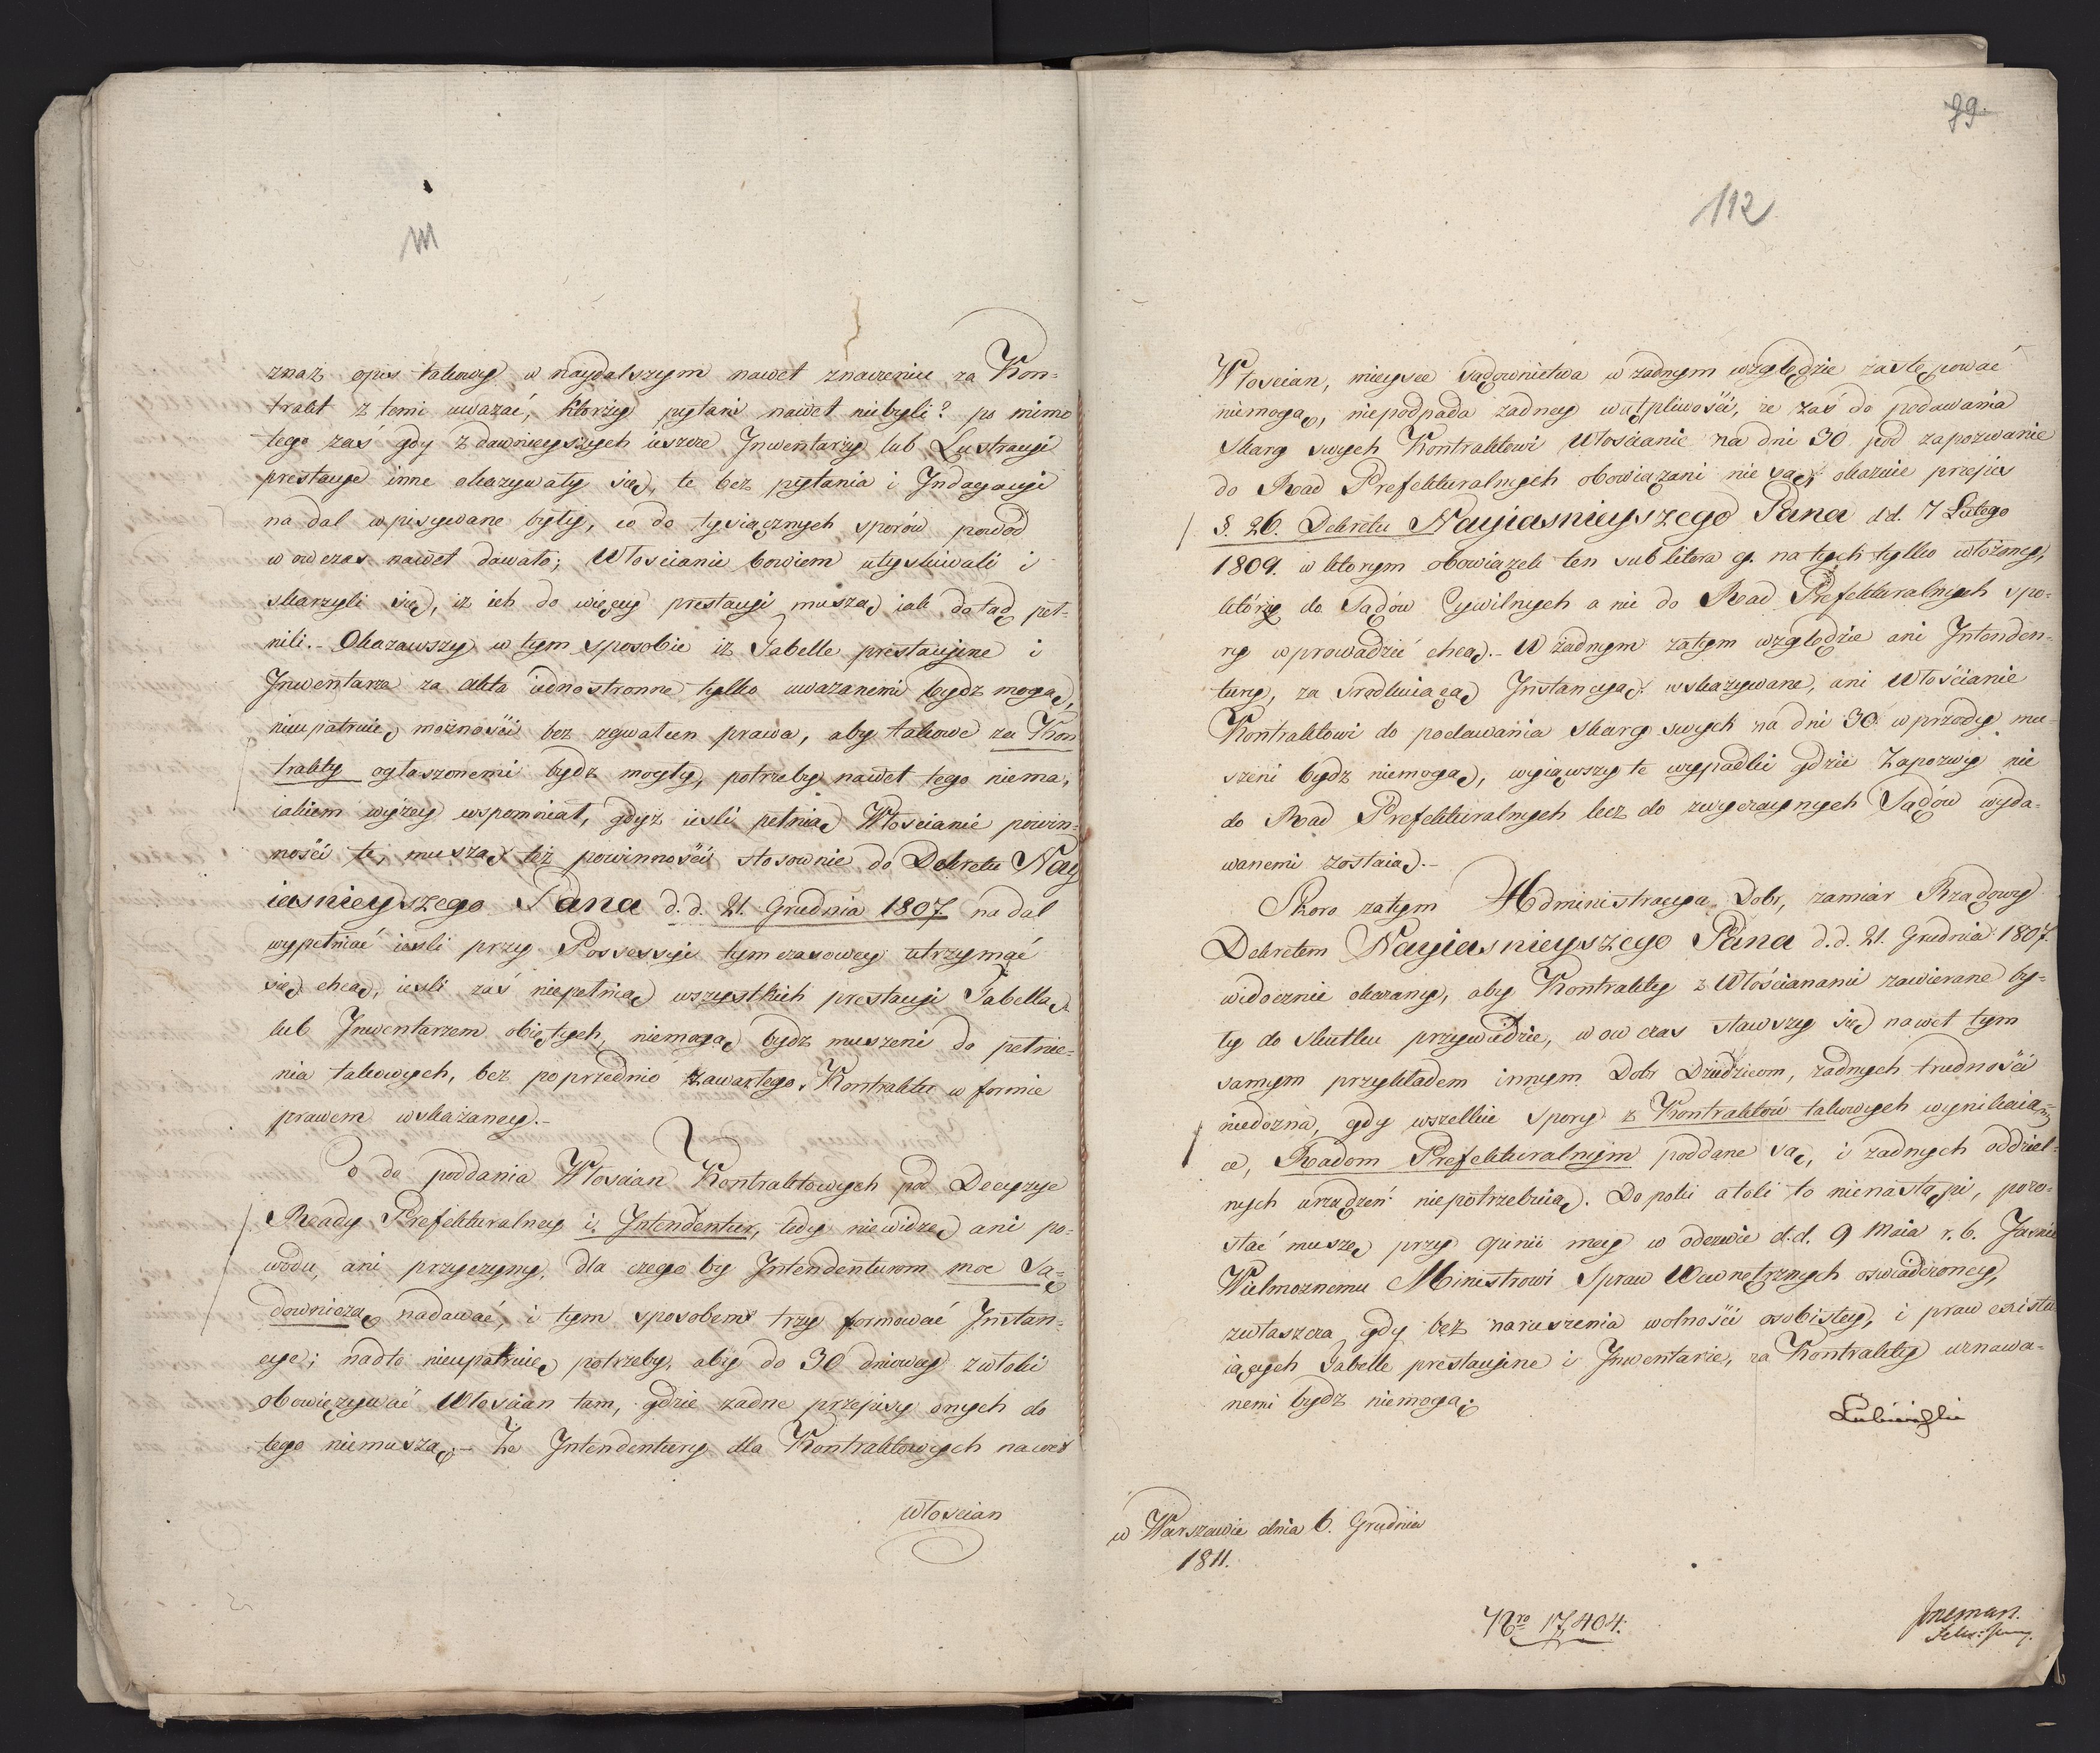 111
znaż opis takowy w naydalszym nawet znaczeniu za Kon-
trakt z temi uważać, którzy pytani nawet niebyli? po mimo
tego zaś gdy z dawnieyszych ieszcze Inwentarzy lub Lustracyi
prestacye inne okazywały się, te bez pytania i Indagacyi
na dal wpisywane były, co do tysiącznych sporów powod
w owczas nawet dawało; Włoscianie bowiem utyskiwali i
skarzyli się, iz ich do więcey prestacyi muszą iak dotąd peł-
nili.- Okazawszy w tym sposobie iz Tabelle prestacyine i
Inwentarza za akta iednostronne tylko uwazanemi bydz mogą,
nieupatruię możności bez zgwałcen prawa, aby takowe za Kon
trakty ogłaszonemi bydz mogły, potrzeby nawet tego niema,
iakiem wyżey wspomniał, gdyż iesli pełnią Włoscianie powin-
ności te, muszą też powinności stosownie do Dekretu Nay
iasnieyszego Pana d.d. 21. Grudnia 1807 na dal
wypełniać iesli przy Possessyi tymczasowey utrzymać
się chcą, iesli zaś niepełnią wszystkich prestacyi Tabellą
lub Inwentarzem obiętych, niemogą bydz muszeni do pełnie-
nia takowych, bez poprzednio zawartego Kontraktu w formie
prawem wskazaney.-
Co do poddania Włoscian Kontraktowych pod Decyzye
Rady Prefekturalney i Intendentur, tedy niewidzę ani po-
wodu, ani przyczyny, dla czego by Intendenturom moc Są-
downiczą nadawać, i tym sposobem trzy formować Instan-
cye; nadto nieupatruię potrzeby, aby do 30 dniowey zwłoki
obowięzywać Włoscian tam, gdzie zadne przepisy onych do
tego niemuszą.- Ze Intendentury dla Kontraktowych nawet
Włoscian
89.
112
Włoscian, mieysce sądownictwa w żadnym względzie zastępować
niemogą, niepodpada żadney wątpliwości, ze zaś do podawania
skarg swych Kontraktowi Włoscianie na dni 30 pod zapozwanie
do Rad Prefekturalnych obowiązani nie są, okazuie przepis
§. 26. Dekretu Nayiasnieyszego Pana d.d. 7 Lutego
1809. w ktorym obowiązek ten sub litera g. na tych tylko włożony,
którzy do Sądów Cywilnych a nie do Rad Prefekturalnych spo-
ry wprowadzić chcą.- W żadnym zatym względzie ani Intenden-
tury, za srodkuiącą Instancyą wskazywane, ani Włościanie
Kontraktowi do podawania skarg swych na dni 30 wprzody mu-
szeni bydz niemogą, wyiąwszy te wypadki gdzie Zapozwy nie
do Rad Prefekturalnych lecz do zwyczaynych Sądów wyda-
wanemi zostaią.-
Skoro zatym Administracya Dobr, zamiar Rządowy
Dekretem Nayiasnieyszego Pana d.d. 21. Grudnia 1807.
widocznie okazany, aby Kontrakty z Włościanami zawierane by-
ły do skutku przywiedzie, w ow czas stawszy się nawet tym
samym przykładem innym Dobr Dziedzicom, żadnych trudności
niedozna, gdy wszelkie spory z Kontraktów takowych wynikaią-
ce, Radom Prefekturalnym poddane są, i zadnych oddziel-
nych urządzeń niepotrzebuią. Do poki atoli to nienastąpi, pozo-
stać muszę przy opinii mey w odezwie d.d. 9 Maia r. b. Jasnie
Wielmoznemu Ministrowi Spraw Wewnętrznych oswiadczoney,
zwłaszcza gdy bez naruszenia wolności osobistey, i praw existu
iących Tabelle prestacyine i Inwentarze, za Kontrakty uznawa-
nemi bydz niemogą.
Łubieński
w Warszawie dnia 6. Grudnia
1811.
Nro 17,404.